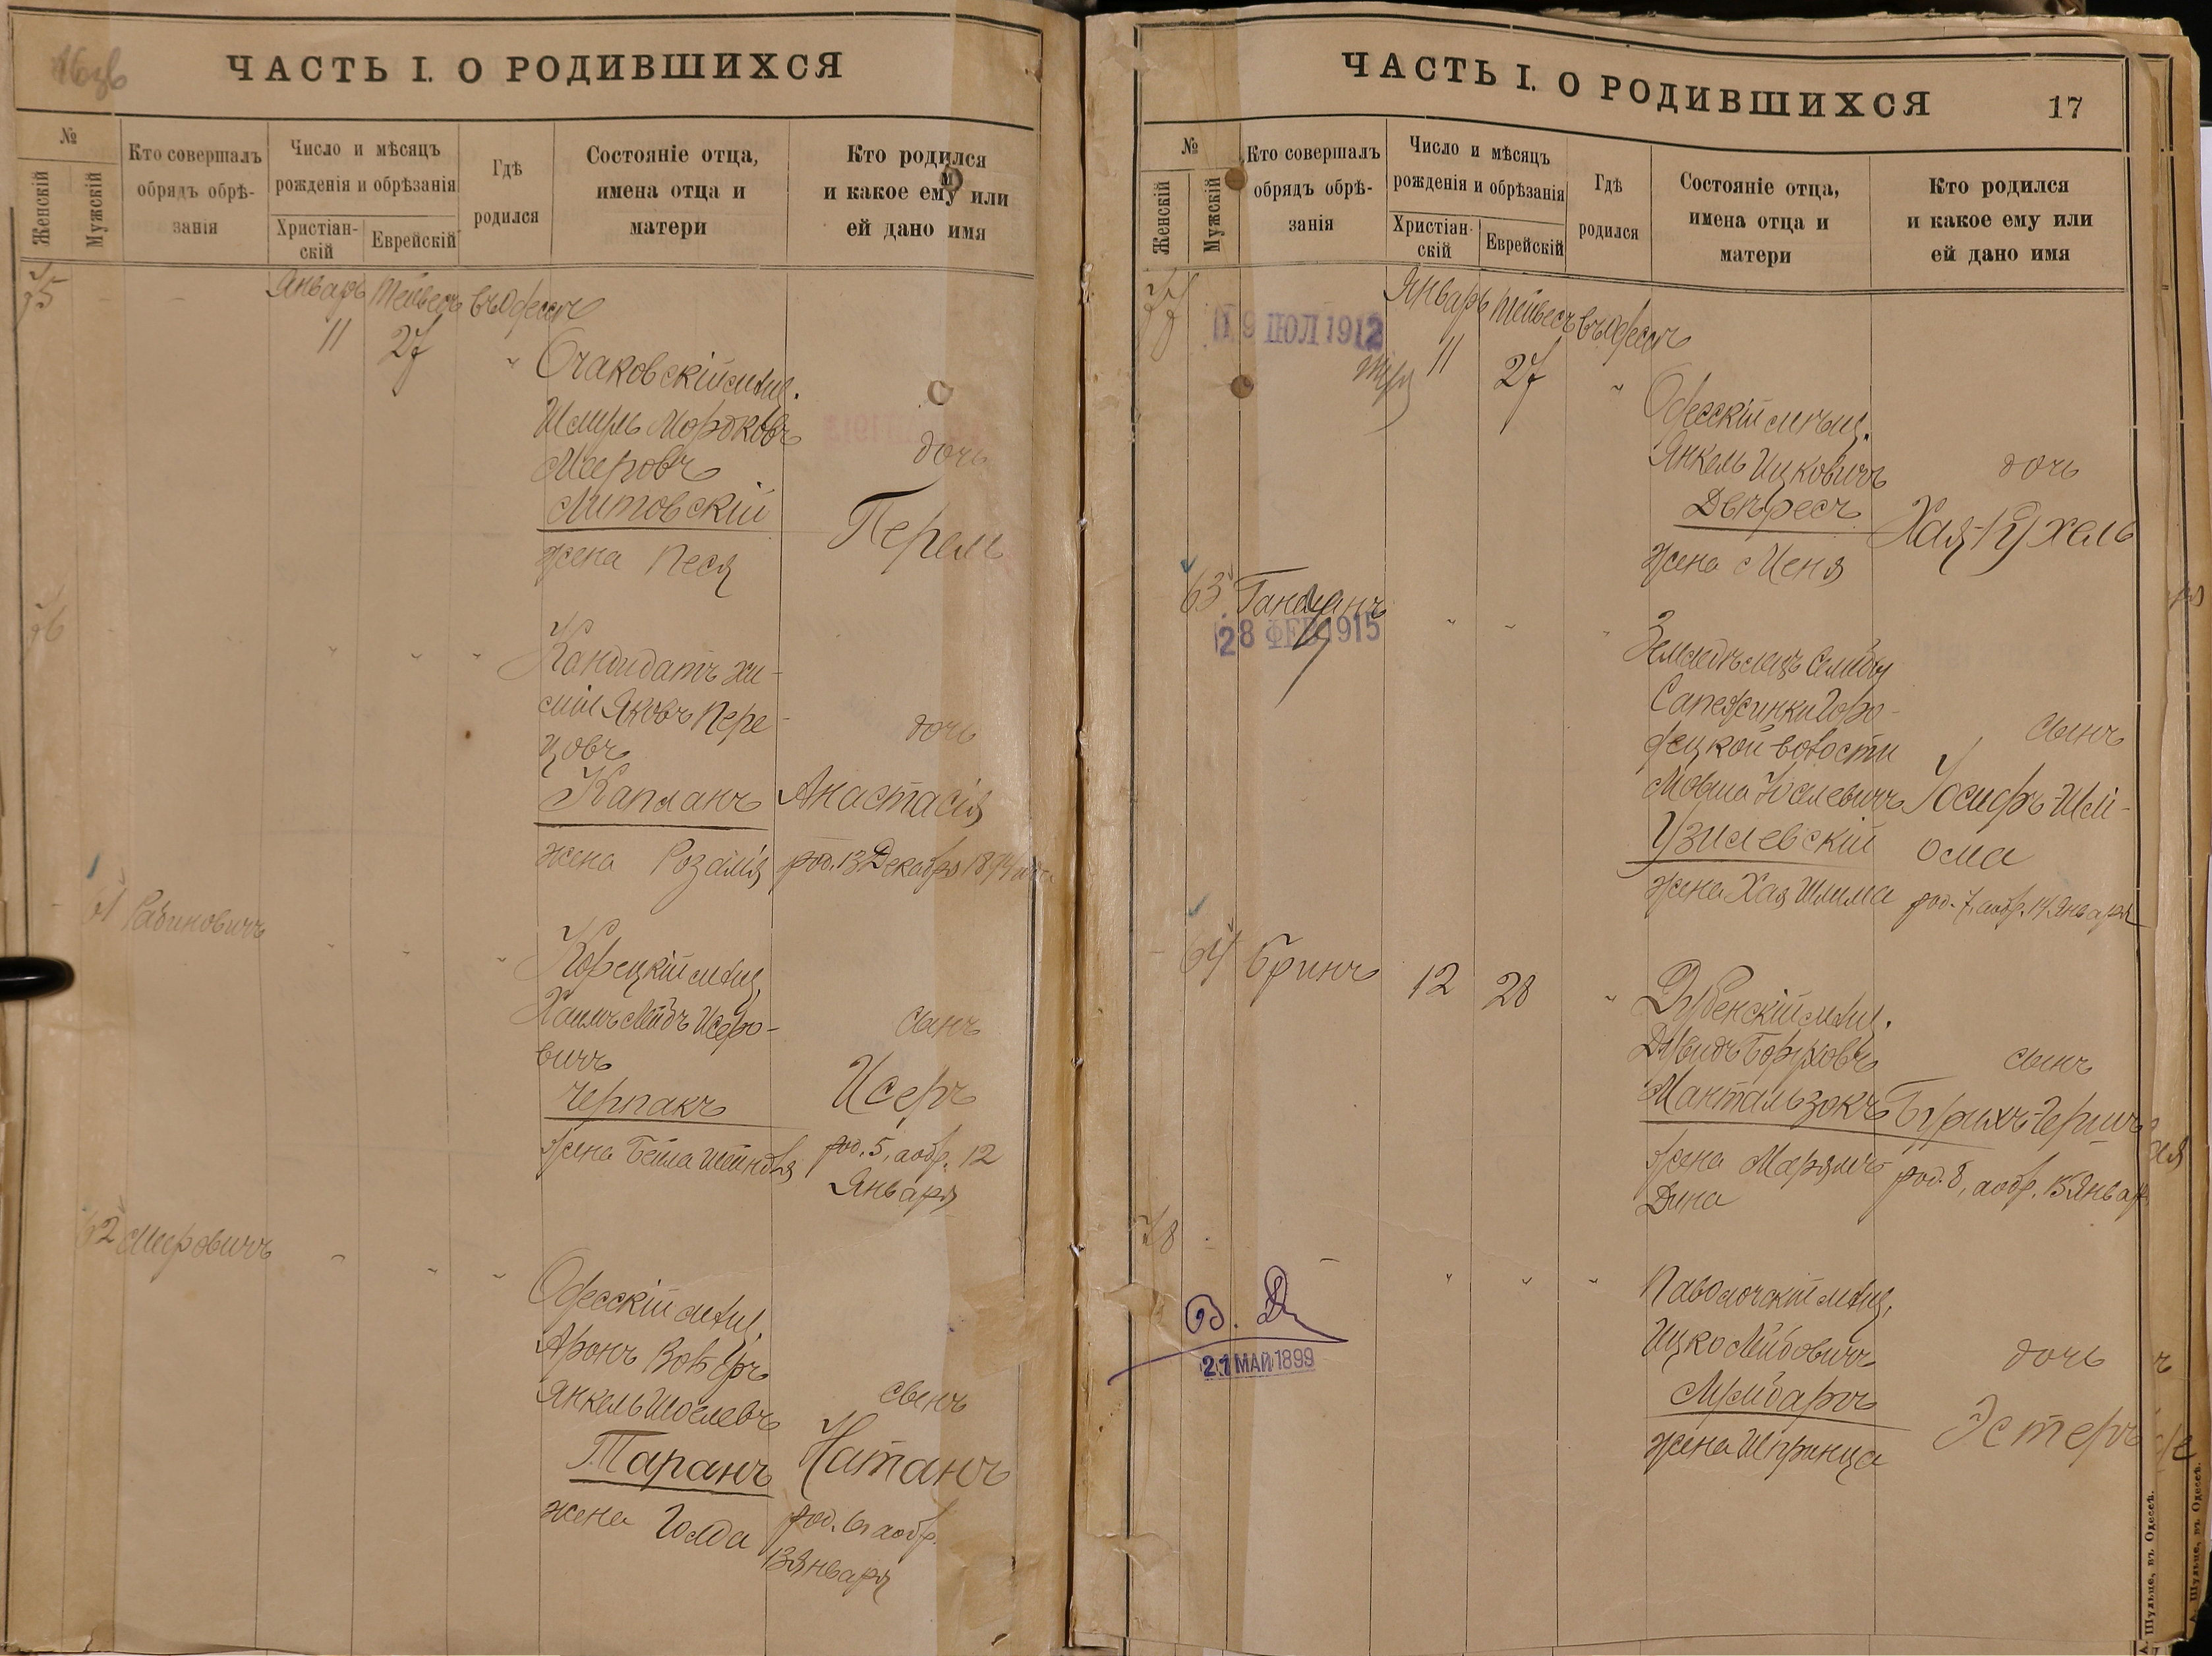 16об
ЧАСТЬ I. О РОДИВШИХСЯ
№
Женскій
Мужскій
Кто совершалъ
обрядъ обрѣ-
занія
Число и мѣсяцъ
рожденія и обрѣзанія
Христіан-
скій
Еврейскій
Гдѣ
родился
Состояніе отца,
имена отца и
матери
Кто родился
и какое ему или
ей дано имя
75
Январь Тейвесъ въ Одессѣ
11 27
Очаковскій мѣщ.
Шмуль Мордковъ
Мееровъ
Литовскій
жена Песя
дочь
Перель
76
Кандидатъ хи-
міи Яковъ Пере-
цовъ
Капланъ
жена Розалія
дочь
Анастасія
род. 13 Декабря 1874 года
61 Рабиновичъ
Корецкій мѣщ.
Хаимъ Лейбъ Исеро-
вичъ
Черпакъ
жена Бейла Шейндля
сынъ
Исеръ
род. 5, а обр. 12
Января
62 Меировичъ
Одесскій мѣщ.
Аронъ Вольфъ
Янкель Іоселевъ
Таранъ
жена Голда
сынъ
Натанъ
род. 6, а обр.
13 Января
ЧАСТЬ I. О РОДИВШИХСЯ
17
№
Женскій
Мужскій
Кто совершалъ
обрядъ обрѣ-
занія
Число и мѣсяцъ
рожденія и обрѣзанія
Христіан-
скій
Еврейскій
Гдѣ
родился
Состояніе отца,
имена отца и
матери
Кто родился
и какое ему или
ей дано имя
77
19 ІЮЛ 1912
Январь Тейвесъ въ Одессѣ
11 27
Одесскій мѣщ.
Янкель Ицковичъ
Двѣресъ
жена Меня
дочь
Хая-Рухель
63 Гандманъ
28 ФЕВ 1915
Сапежинки Горо-
децкой волости
Мовша Іоселевичъ
Узилевскій
жена Хая Шлима
сынъ
Іосифъ-Шлі-
ома
род. 7, а обр. 14 Января
64 Бринъ
12 28
Дубенскій мѣщ.
Дувидъ Боруховъ
Мантальзокъ
жена Марьямъ
Дина
сынъ
Бурихъ-Гершъ
род. 8, а обр. 15 Январ.
78
21 МАЙ 1899
Паволочскій мѣщ.
Ицко Лейбовичъ
жена Шпринца
дочь
Эстеръ
А. Шульце, въ Одессѣ.
А. Шульце, въ Одессѣ.